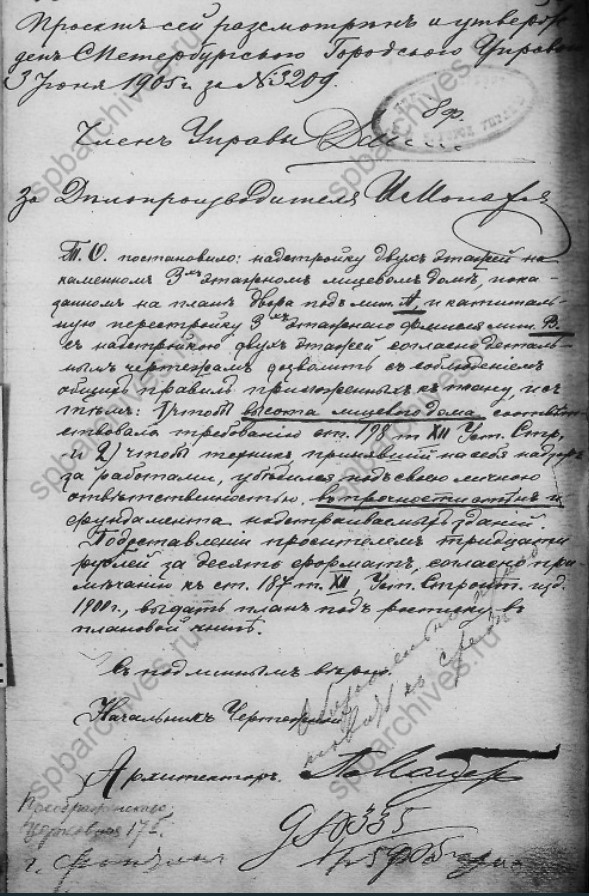 Проектъ сей разсмотрѣнъ и утверж-
денъ С.Петербургскою Городскою Управою
3 Іюня 1905 г. за № 3209.
Членъ Управы
За Дѣлопроизводителя
Т. О. постановило: надстройку двухъ этажей на
каменномъ 3хъ этажномъ лицевомъ домѣ, пока-
занномъ на планѣ двора подъ лит. А, и капиталь-
ную перестройку 3хъ этажнаго флигеля лит. В.
съ надстройкою двухъ этажей согласно деталь-
нымъ чертежамъ дозволить съ соблюденіемъ
общихъ правилъ приложенныхъ къ плану, и съ
тѣмъ: 1) чтобы высота лицевого дома соотвѣт-
ствовала требованію ст. 198 т XII Уст. Стр.
и 2) чтобы техникъ принявшій на себя надзоръ
за работами, убѣдился подъ своею личною
отвѣтственностью, въ прочности стѣнъ и
фундамента надстраиваемыхъ зданій.
По представленіи просителемъ тридцати
рублей за десять форматъ, согласно при-
мѣчанію къ ст. 187 т. XII, Уст. Строит. изд.
1900 г., выдать планъ подъ росписку въ
плановой книгѣ.
Съ подлиннымъ вѣрно.
Начальникъ Чертежной
Архитекторъ.
Преображенская
17
г.
spbarchives.ru
spbarchives.ru
spbarchives.ru
spbarchives.ru
spbarchives.ru
spbarchives.ru
spbarchives.ru
spbarchives.ru